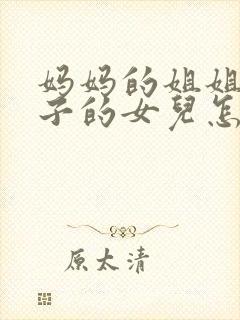 妈妈的姐姐
子的女兒怎
原太清